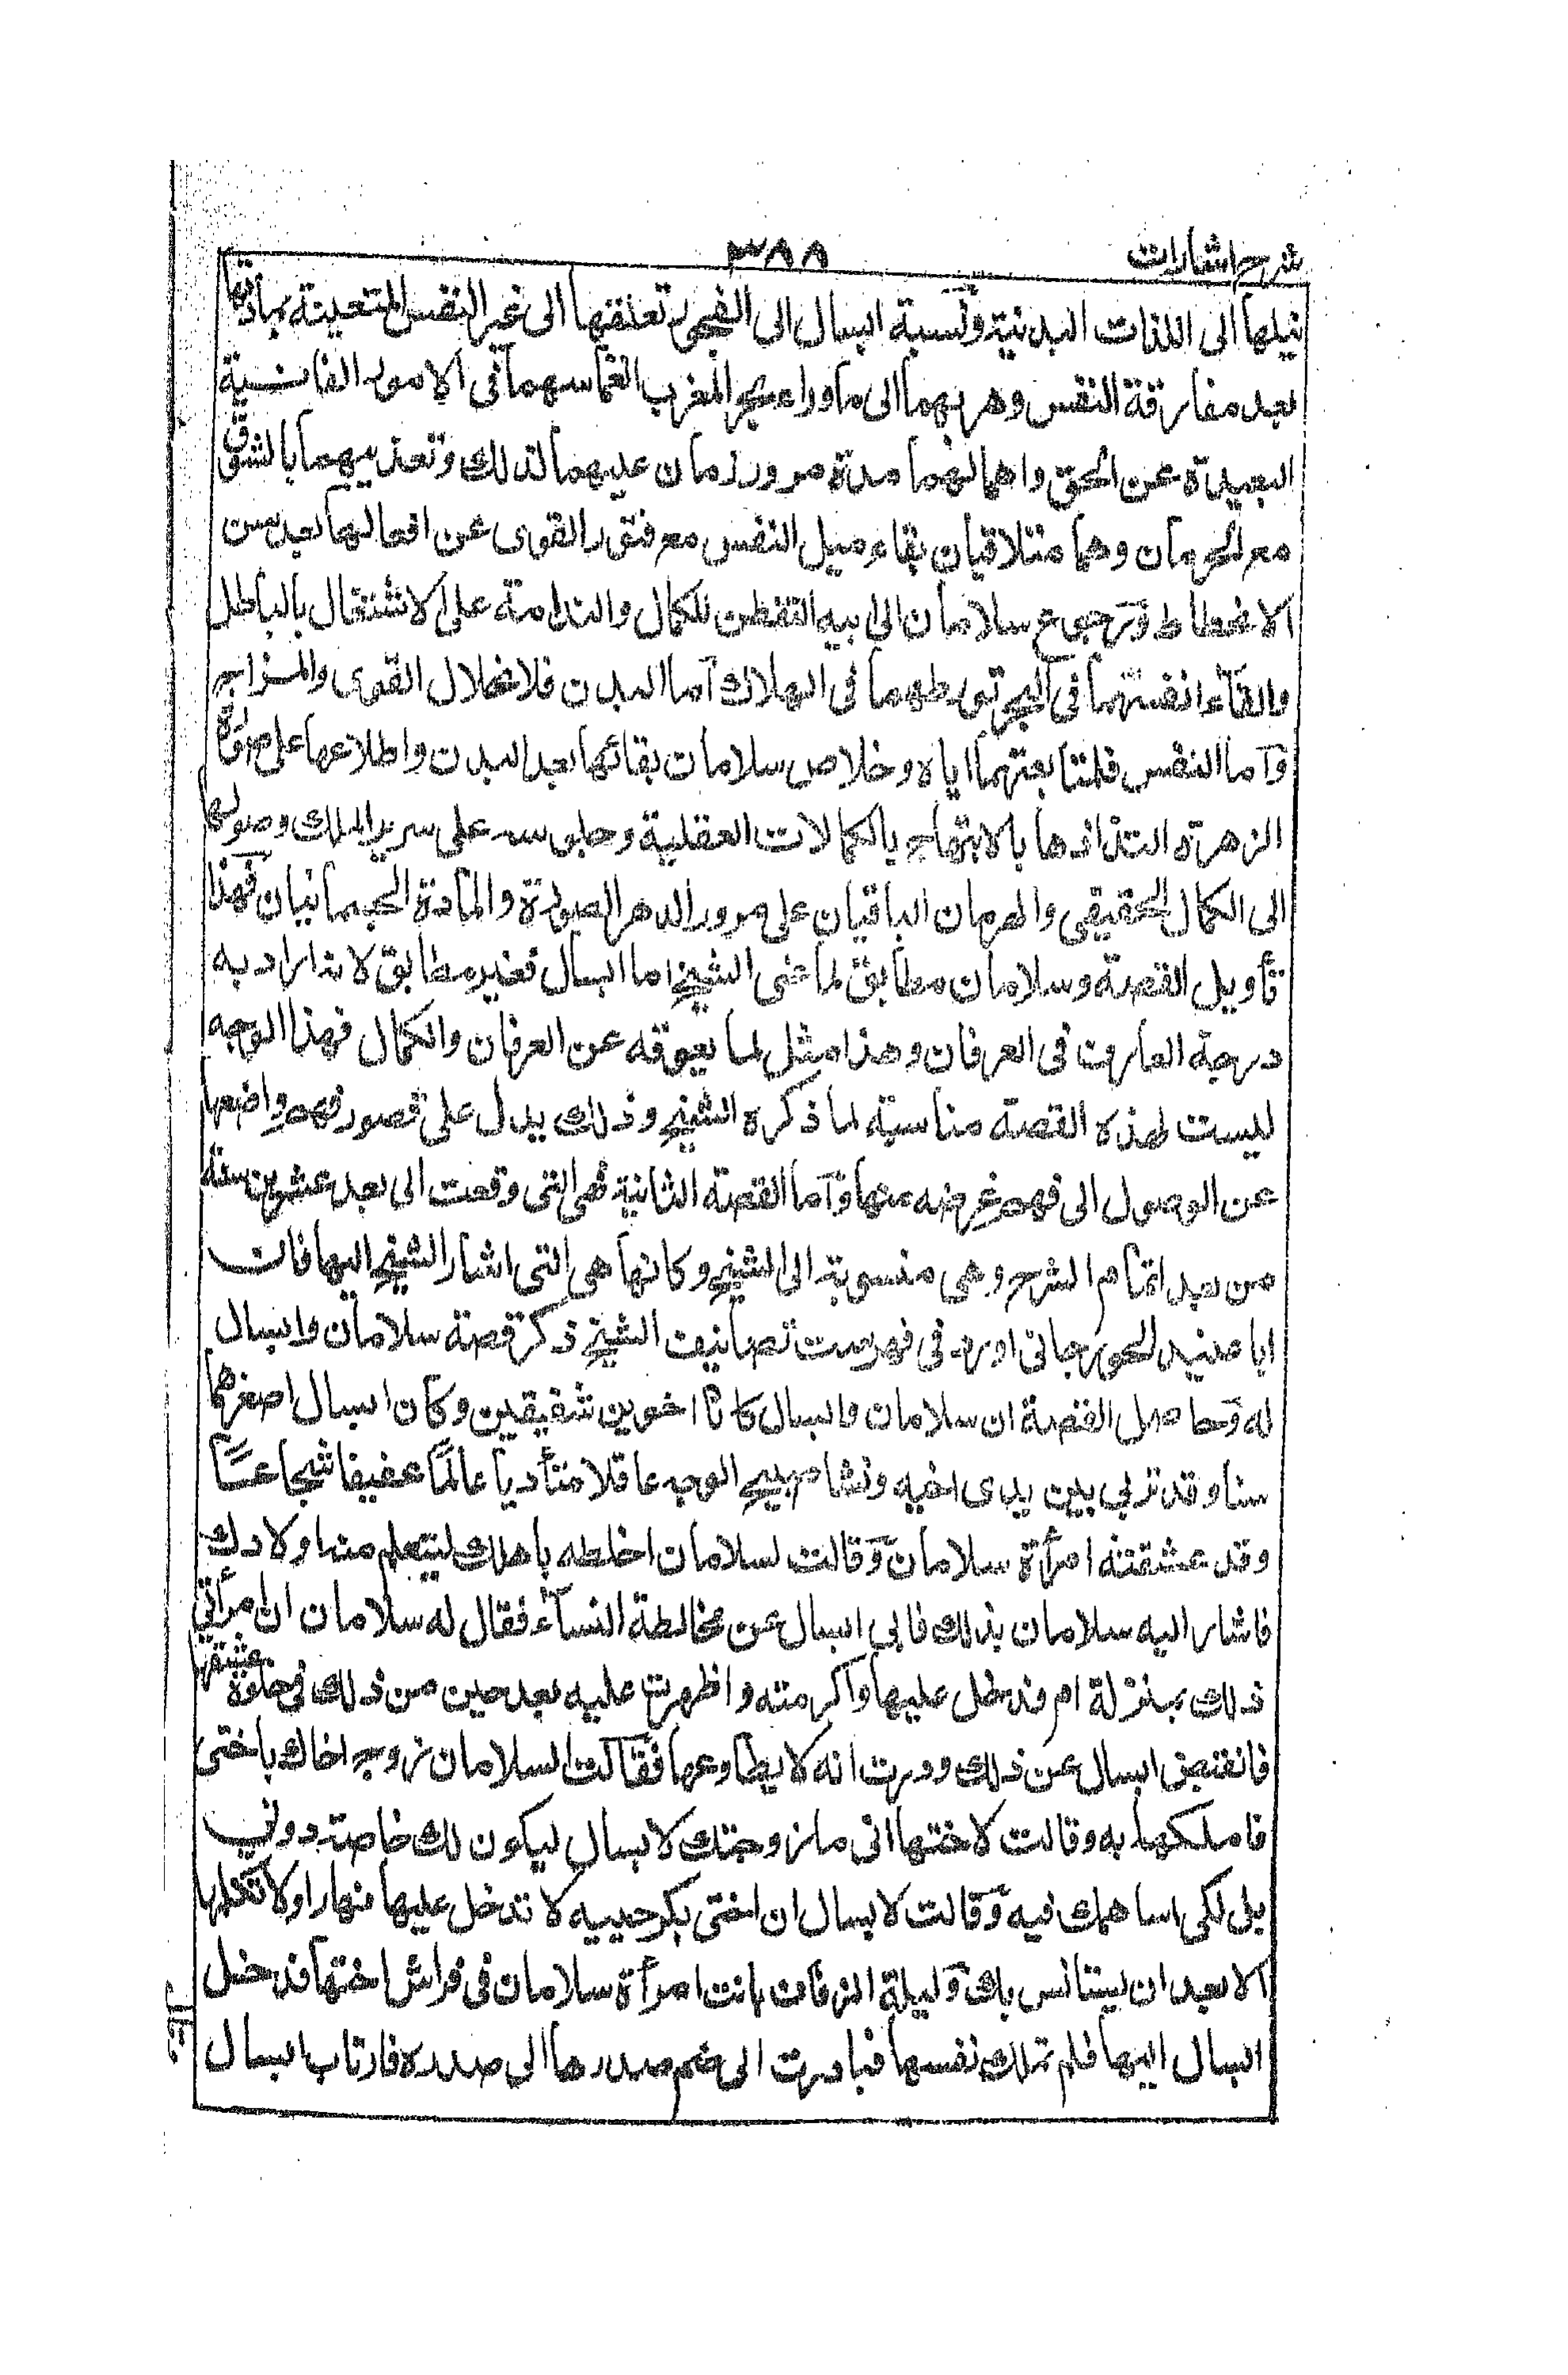 شرح اشارات
٣٨٨
نيلها الى اللذات البدنية ونسبة ابسال الى الفجور تعلقها الى غير النفس المتعينة بمادتها
بعد مفارقة النفس وهربهما الى ما وراء بحر المغرب انغماسهما في الامور الفانية
البعيدة عن الحق واهمالهما مدة مرور زمان عليهما لذلك وتعذيبهما بالشوق
مع الحرمان وهما متلاقيان بقاء ميل النفس مع فتور القوى عن افعالها بعد سن
الانحطاط ورجوع سلامان الى ابيه التفطن للكمال والندامة على الاشتغال بالباطل
والقاء انفسهما في البحر تورطهما في الهلاك اما البدن فلانحلال القوى والمزاج
واما النفس فلمتابعتهما اياه وخلاص سلامان بقائها بعد البدن واطلاعها على صورة
الزهرة التذاذها بالابتهاج بالكمالات العقلية وجلوسه على سرير الملك وصولها
الى الكمال الحقيقي والهرمان الباقيان على مرور الدهر الصورة والمادة الجسمانيان فهذا
تأويل القصة وسلامان مطابق لما عنى الشيخ اما ابسال فغير مطابق لانه اراد به
درجة العارف في العرفان وهذا مثل لما يعوقه عن العرفان والكمال فهذا الوجه
ليست لهذه القصة مناسبة لما ذكره الشيخ وذلك يدل على قصور فهم واضعها
عن الوصول الى فهم غرضه منها واما القصة الثانية فهي التي وقعت الى بعد عشرين سنة
من بعد اتمام الشرح وهي منسوبة الى الشيخ وكانها هي التي اشار الشيخ اليها فان
ابا عبيد الجورجاني اورد في فهرست تصانيف الشيخ ذكر قصة سلامان وابسال
له وحاصل القصة ان سلامان وابسال كانا اخوين شقيقين وكان ابسال اصغرهما
سنا وقد تربى بين يدى اخيه ونشا صبيح الوجه عاقلا متأدبا عالما عفيفا شجاعا
وقد عشقته امرأة سلامان وقالت لسلامان اخلطه باهلك ليتعلم منه اولادك
فاشار اليه سلامان بذلك فابى ابسال عن مخالطة النساء فقال له سلامان ان امرأتي
ذلك بمنزلة ام فدخل عليها واكرمته واظهرت عليه بعد حين من ذلك في خلوة عشقها
فانقبض ابسال عن ذلك ودرت انه لا يطاوعها فقالت لسلامان زوج اخاك باختى
فاملكها به وقالت لاختها انى ما زوجتك لابسال ليكون لك خاصة دوني
بل لكى اساهمك فيه وقالت لابسال ان اختى بكر حيية لا تدخل عليها نهارا ولا تكلمها
الا بعد ان يستانس بك وليلة الزفاف باتت امرأة سلامان في فراش اختها فدخل
ابسال اليها فلم تملك نفسها فبادرت الى ضم صدرها الى صدره فارتاب ابسال